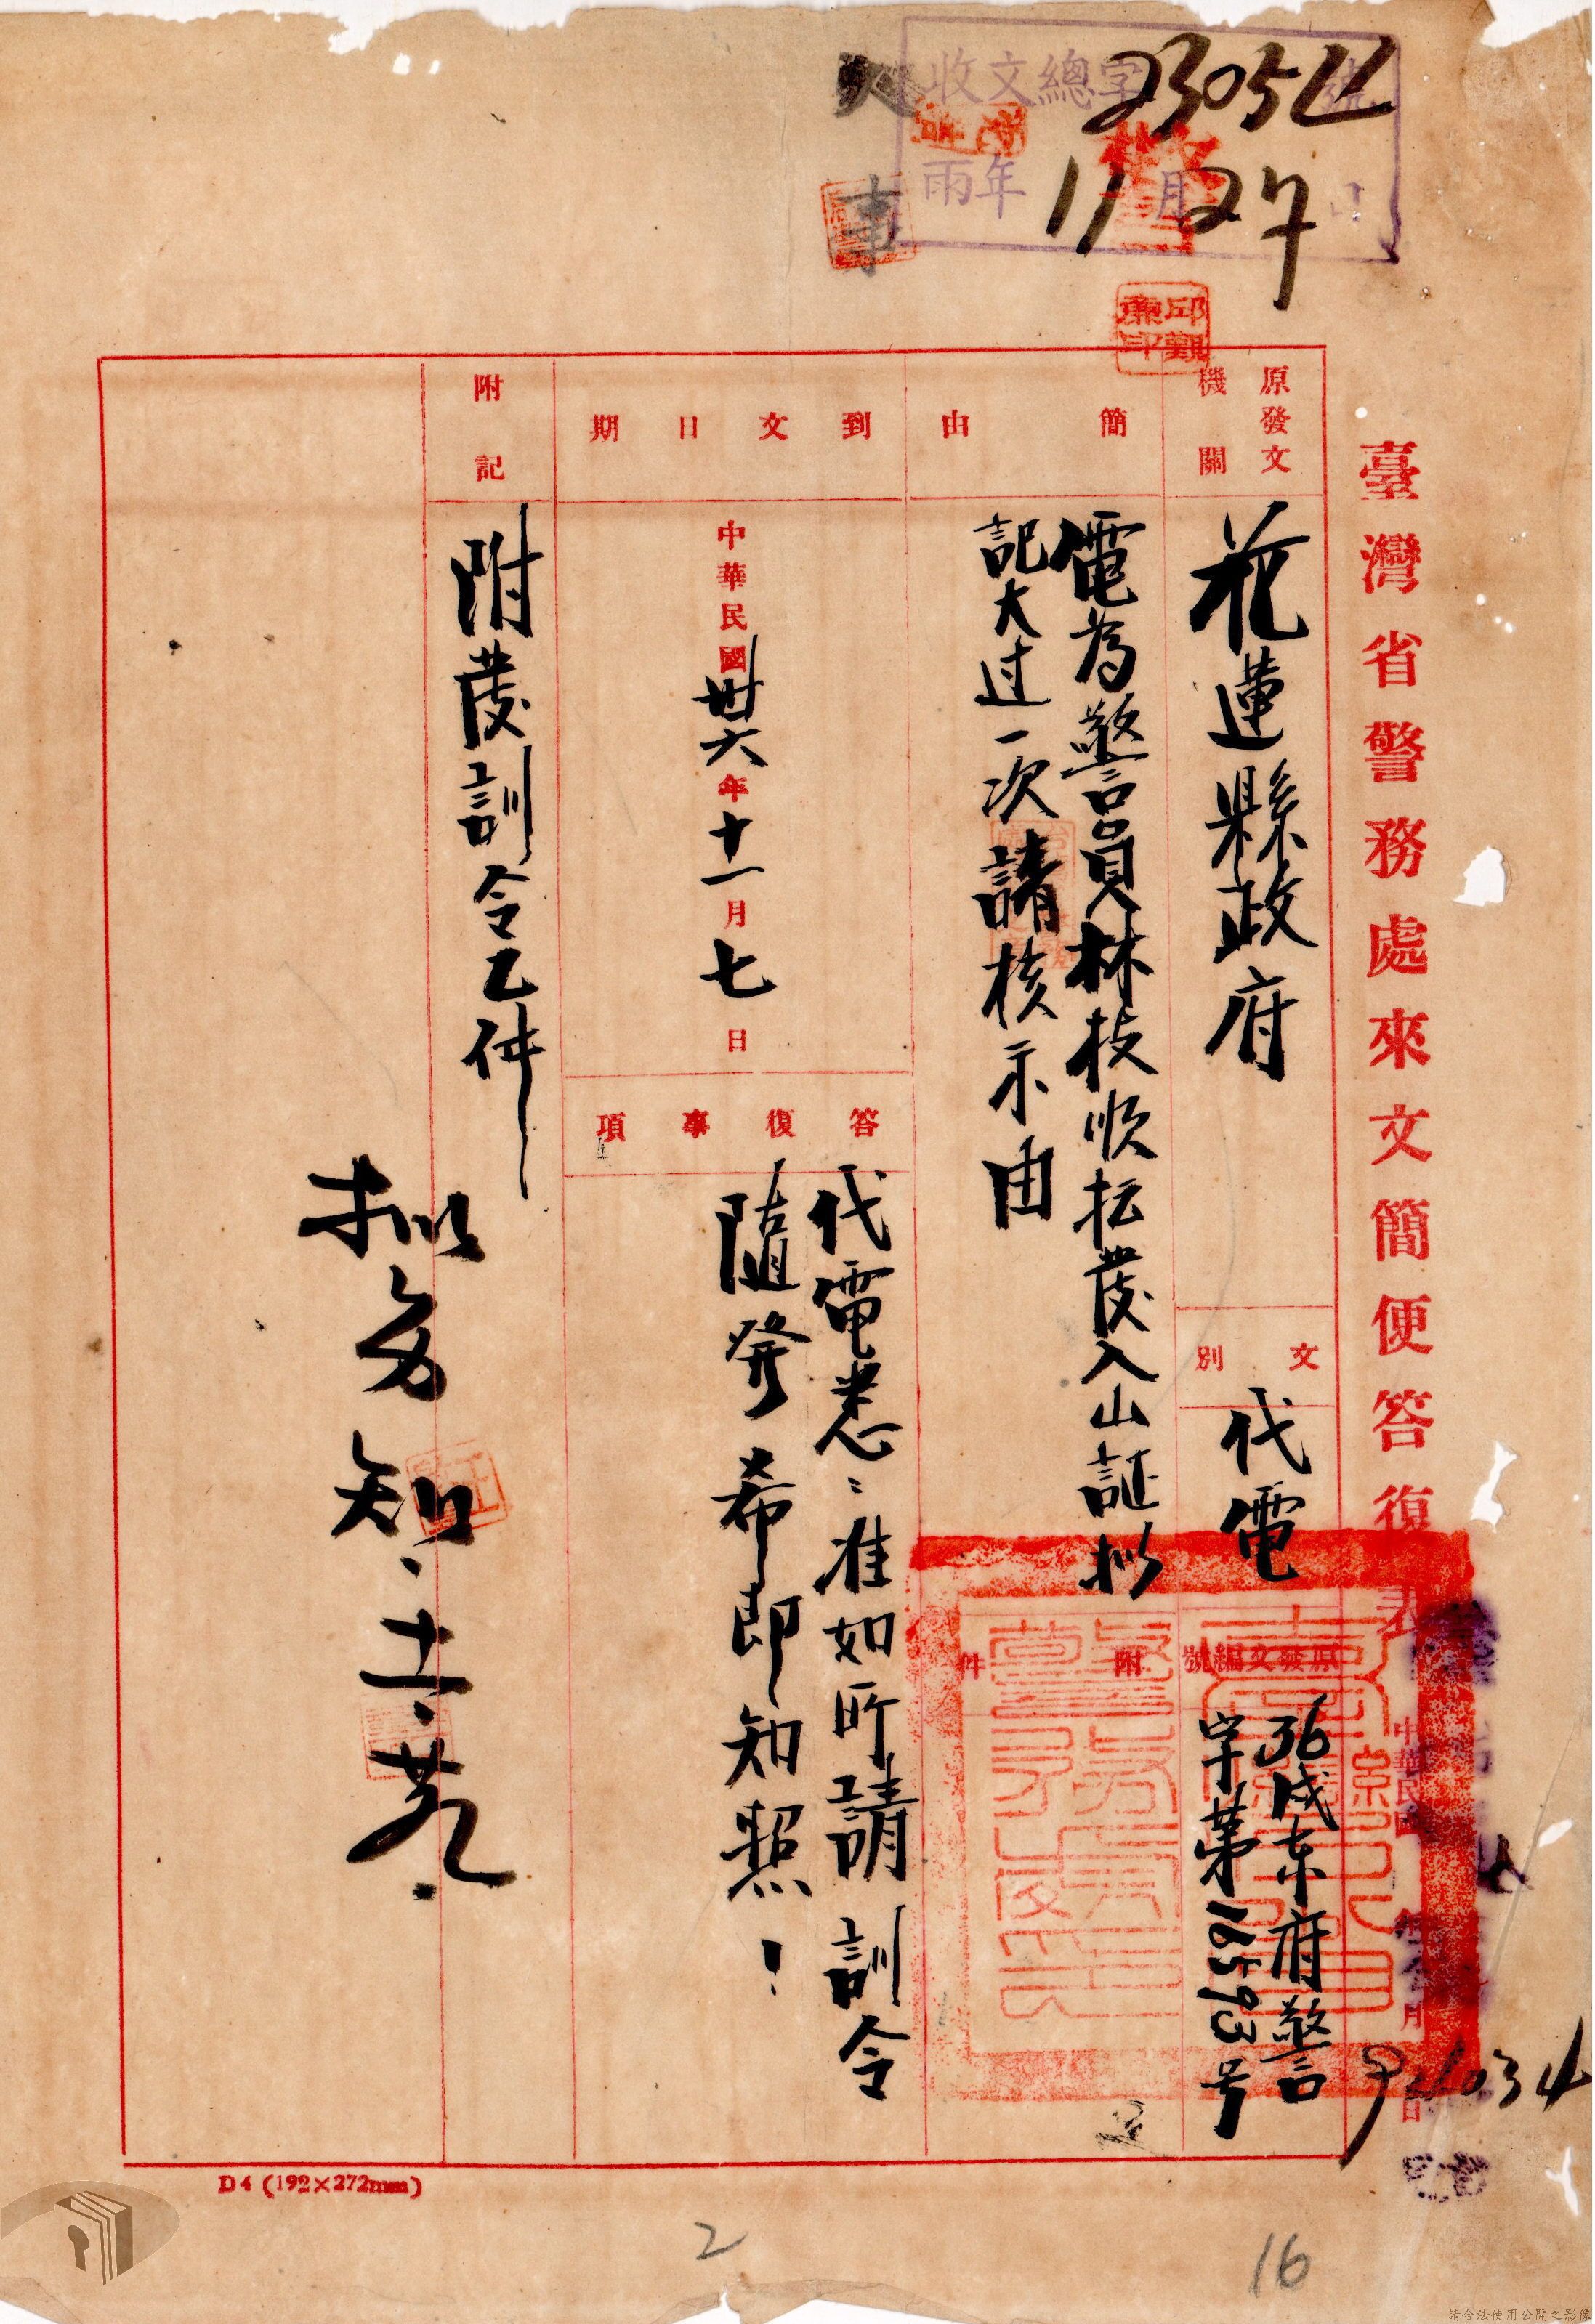 收文總字230511號
年11月27日
人事
邱觀
印
臺灣省警務處來文簡便答復表
中華民國
年
月
日
原發文機關
花蓮縣政府
文別
代電
原發文編號
36戌東府警
字第16593号
簡由
電為警員林枝順抎發入山証拟
記大过一次請核示由
附件
到文日期
中華民國卅六年十一月七日
答復事項
代電悉：准如所請訓令
隨發希即知照！
附記
附發訓令乙件
拟知
D4 (192×272mm)
2
16
請合法使用公開之影像